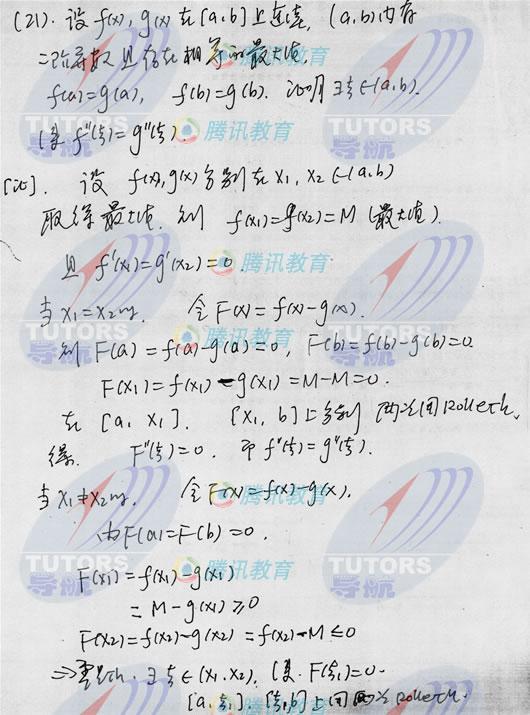 (21). 设 f(x), g(x) 在[a,b]上连续, (a,b)内存
二阶导数且存在相等的最大值,
f(a)=g(a), f(b)=g(b). 证明∃ξ∈(a,b).
使 f''(ξ)=g''(ξ).
[证]. 设 f(x), g(x)分别在 x₁, x₂∈(a,b)
取得最大值. 则 f(x₁)=g(x₂)=M (最大值).
且 f'(x₁)=g'(x₂)=0.
当 x₁=x₂时. 令F(x)=f(x)-g(x).
则 F(a)=f(a)-g(a)=0, F(b)=f(b)-g(b)=0
F(x₁)=f(x₁)-g(x₁)=M-M=0.
在 [a, x₁]. [x₁, b]上分别 两次用Rolleth.
得. F''(ξ)=0. 即 f''(ξ)=g''(ξ).
当 x₁≠x₂时. 令F(x)=f(x)-g(x).
由F(a)=F(b)=0.
F(x₁)=f(x₁)-g(x₁)
=M-g(x₁)≥0
F(x₂)=f(x₂)-g(x₂)=f(x₂)-M≤0
⇒零点th. ∃ξ₁∈(x₁,x₂), 使. F(ξ₁)=0.
[a,ξ₁] [ξ₁,b]上用两次Rolleth.
TUTORS
导航
腾讯教育